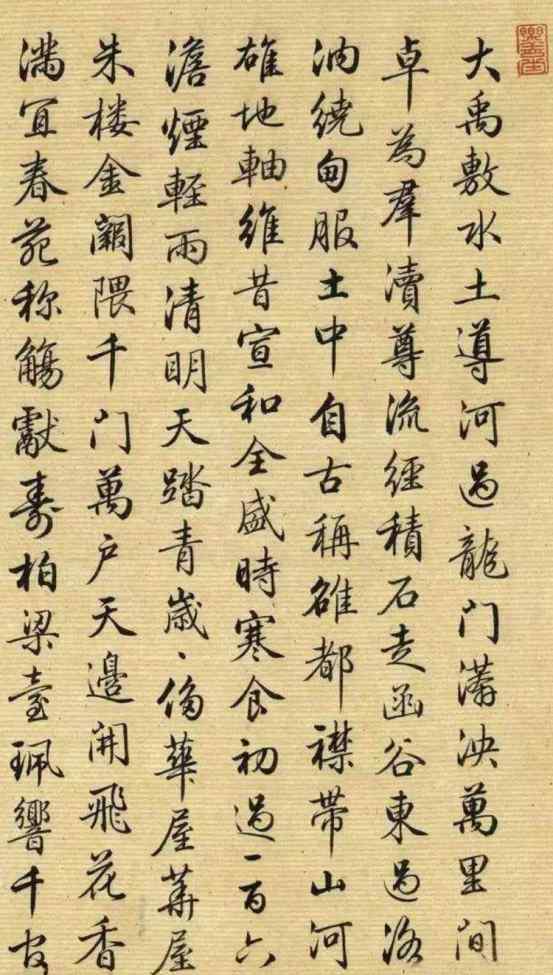 大禹敷水土導河過龍门漭泱萬里间
卓為羣瀆尊流經積石走函谷東過洛
汭繞甸服土中自古稱雒都襟帶山河
雄地軸維昔宣和全盛時寒食初過一百六
澹煙輕雨清明天踏青歲、傷華屋華屋
朱楼金闕隈千门萬户天邊開飛花香
滿宜春苑称觴獻壽柏梁臺珮響千官